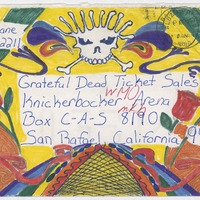 Grateful Dead Ticket Sales
Knickerbocker Arena
Box C-A-S 8190
San Rafael, California